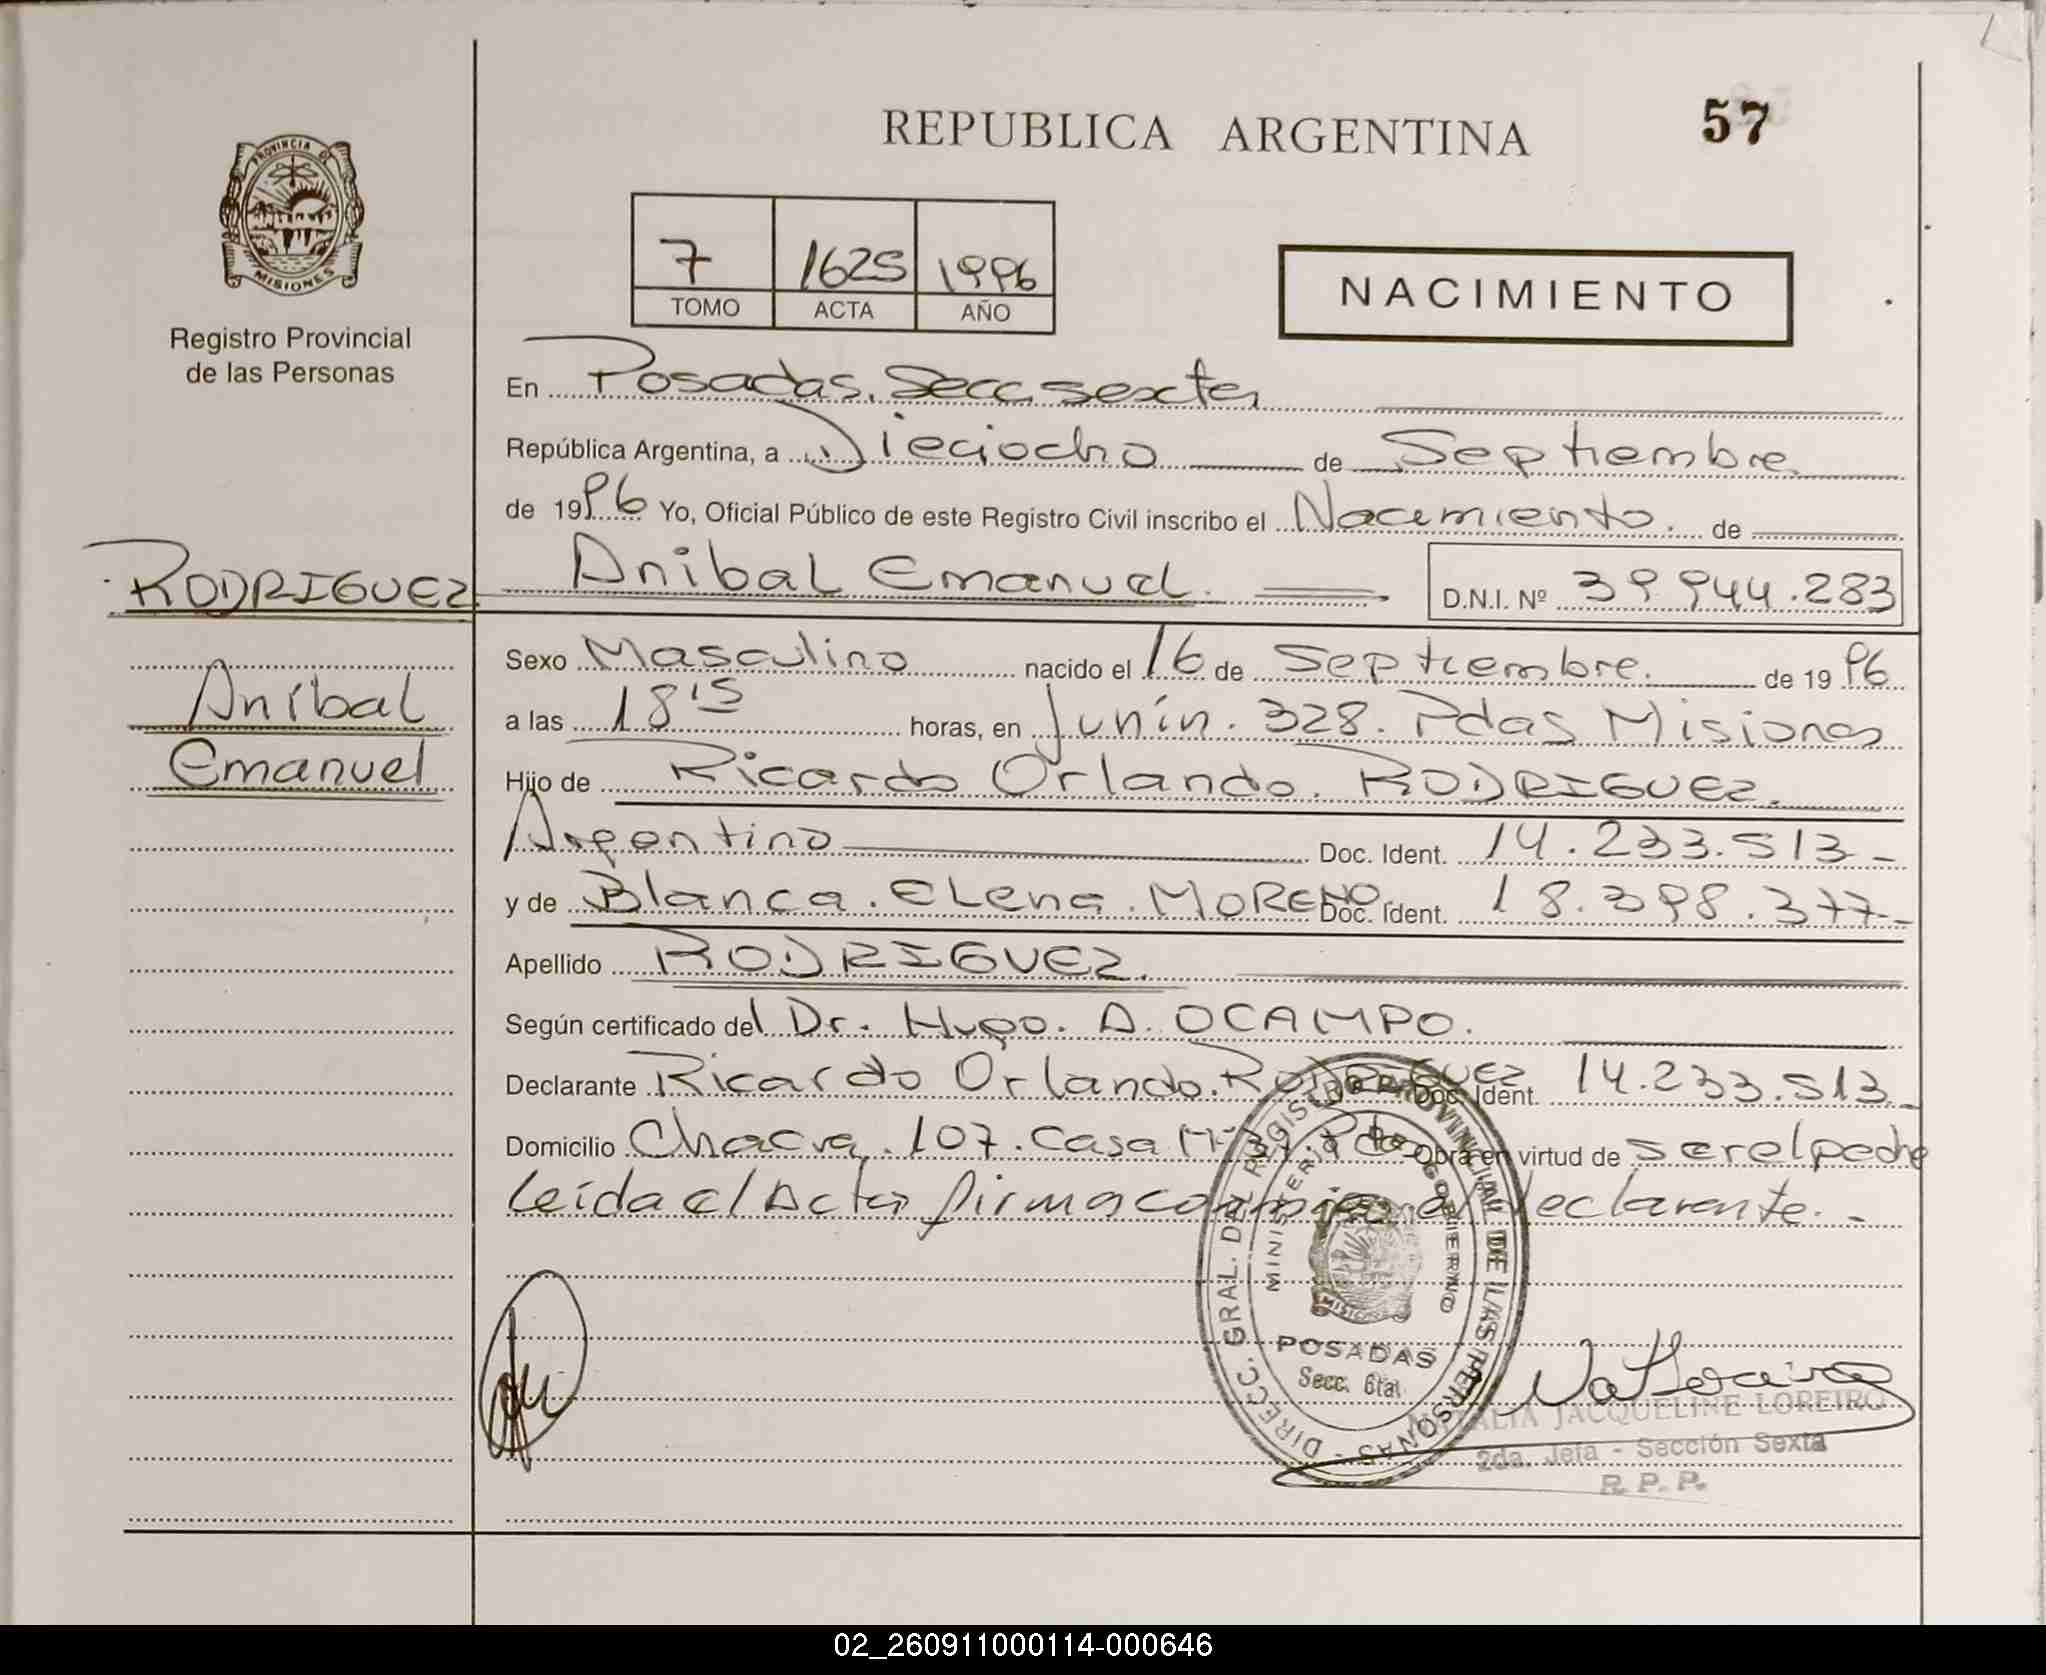 REPUBLICA ARGENTINA
57
PROVINCIA DE
MISIONES
Registro Provincial
de las Personas
7 1625 1996
TOMO ACTA AÑO
NACIMIENTO
En Posadas. Secc. sexta
República Argentina, a Dieciocho de Septiembre
de 1996 Yo, Oficial Público de este Registro Civil inscribo el Nacimiento. de
RODRIGUEZ Anibal Emanuel. D.N.I. Nº 39944.283
Sexo Masculino nacido el 16 de Septiembre. de 1996
Aníbal
a las 18 15 horas, en Junín. 328. Pdas Misiones
Emanuel
Hijo de Ricardo Orlando. RODRIGUEZ.
Argentino Doc. Ident. 14.233.513-
y de Blanca. Elena. MORENO. Doc. Ident. 18.398.377-
Apellido RODRIGUEZ.
Según certificado del Dr. Hugo. A. OCAMPO.
Declarante Ricardo Orlando. RODRIGUEZ Doc. Ident. 14.233.513-
Domicilio Chacra. 107. Casa Pdas Obra en virtud de ser el padre
Leída el Acta firma conmigo el declarante.-
DIRECC. GRAL. DEL REGISTRO PROVINCIAL DE LAS PERSONAS -
MINISTERIO DE GOBIERNO
POSADAS
Secc. 6ta.
NATALIA JACQUELINE LOREIRO
2da. Jefa - Sección Sexta
R. P. P.
02_260911000114-000646